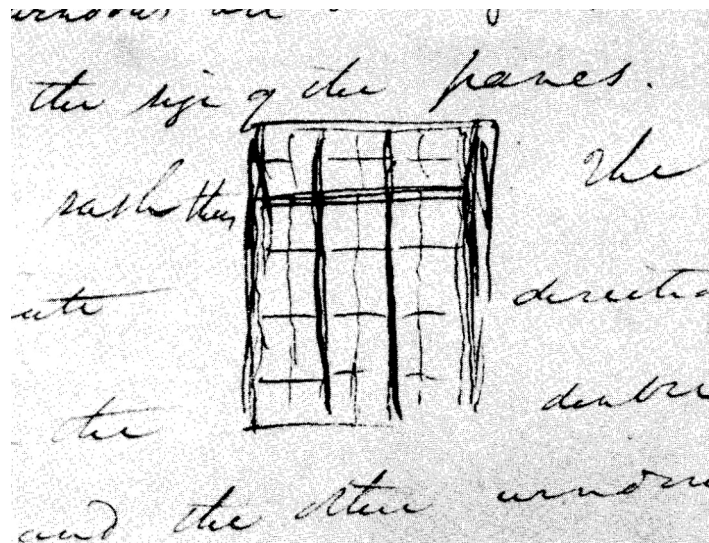 windows are
the size of the panes.
sash thus The
directio
the double
and the other window